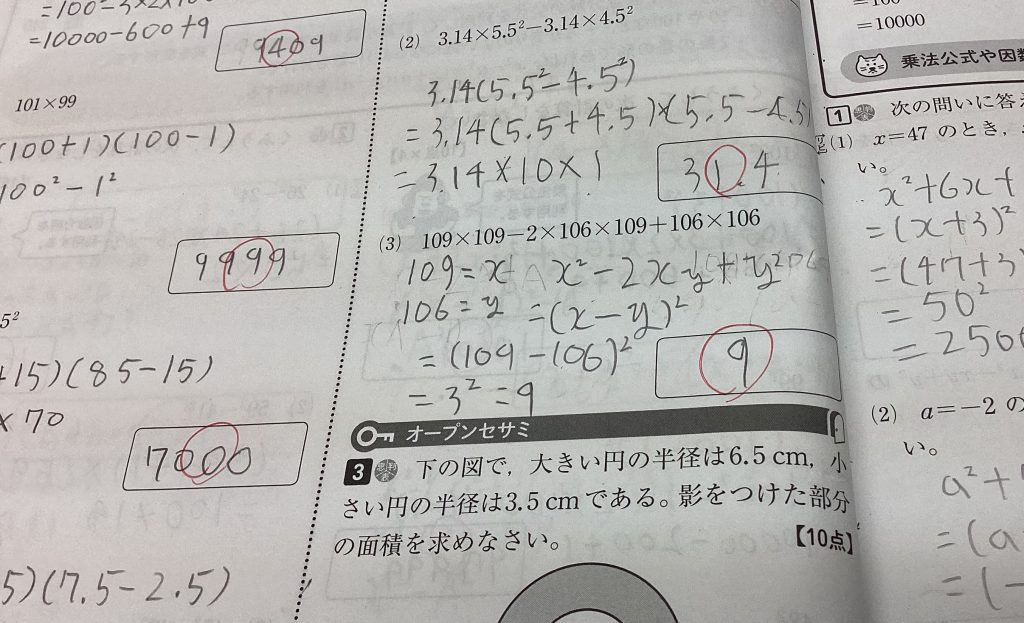 =10000-600+9
9409
101×99
(100+1)(100-1)
100²-1²
9999
5²
+15)(85-15)
×70
7000
5)(7.5-2.5)
(2) 3.14×5.5²-3.14×4.5²
3.14(5.5²-4.5²)
=3.14(5.5+4.5)×(5.5-4.5)
=3.14×10×1
31.4
(3) 109×109-2×106×109+106×106
109=x x²-2xy+y²
106=y =(x-y)²
=(109-106)²
=3²=9
9
オープンセサミ
3 下の図で,大きい円の半径は6.5 cm,小
さい円の半径は3.5 cmである。影をつけた部分
の面積を求めなさい。
【10点】
=10000
乗法公式や因数
1 次の問いに答え
(1) x=47 のとき,
い。
x²+6x+
=(x+3)²
=(47+3)
=50²
=2500
(2) a=-2 の
い。
a²+
=(a
=(-